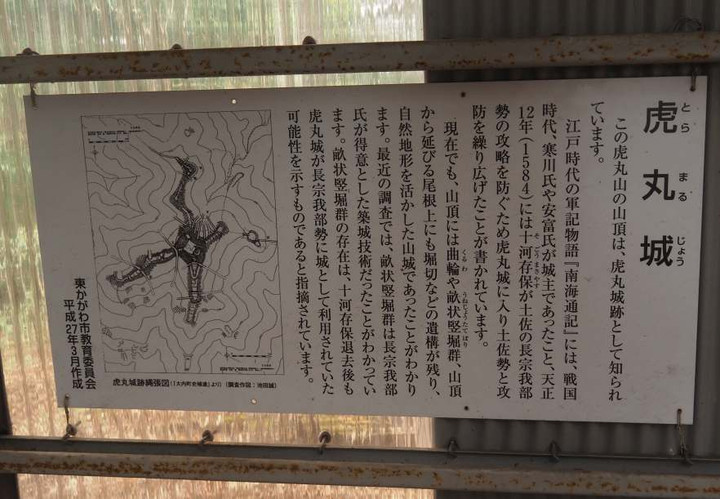 虎丸城
とらまるじょう
この虎丸山の山頂は、虎丸城跡として知られ
ています。
江戸時代の軍記物語『南海通記』には、戦国
時代、寒川氏や安富氏が城主であったこと、天正
12年(1584)には十河存保が土佐の長宗我部
そごうまさやす
勢の攻略を防ぐため虎丸城に入り土佐勢と攻
防を繰り広げたことが書かれています。
現在でも、山頂には曲輪や畝状竪堀群、山頂
くるわ
うねじょうたてぼり
から延びる尾根上にも堀切などの遺構が残り、
自然地形を活かした山城であったことがわかり
ます。最近の調査では、畝状竪堀群は長宗我部
氏が得意とした築城技術だったことがわかってい
ます。畝状竪堀群の存在は、十河存保退去後も
虎丸城が長宗我部勢に城として利用されていた
可能性を示すものであると指摘されています。
虎丸城跡縄張図(『大内町史補遺』より)(調査作図:池田誠)
東かがわ市教育委員会
平成27年3月作成